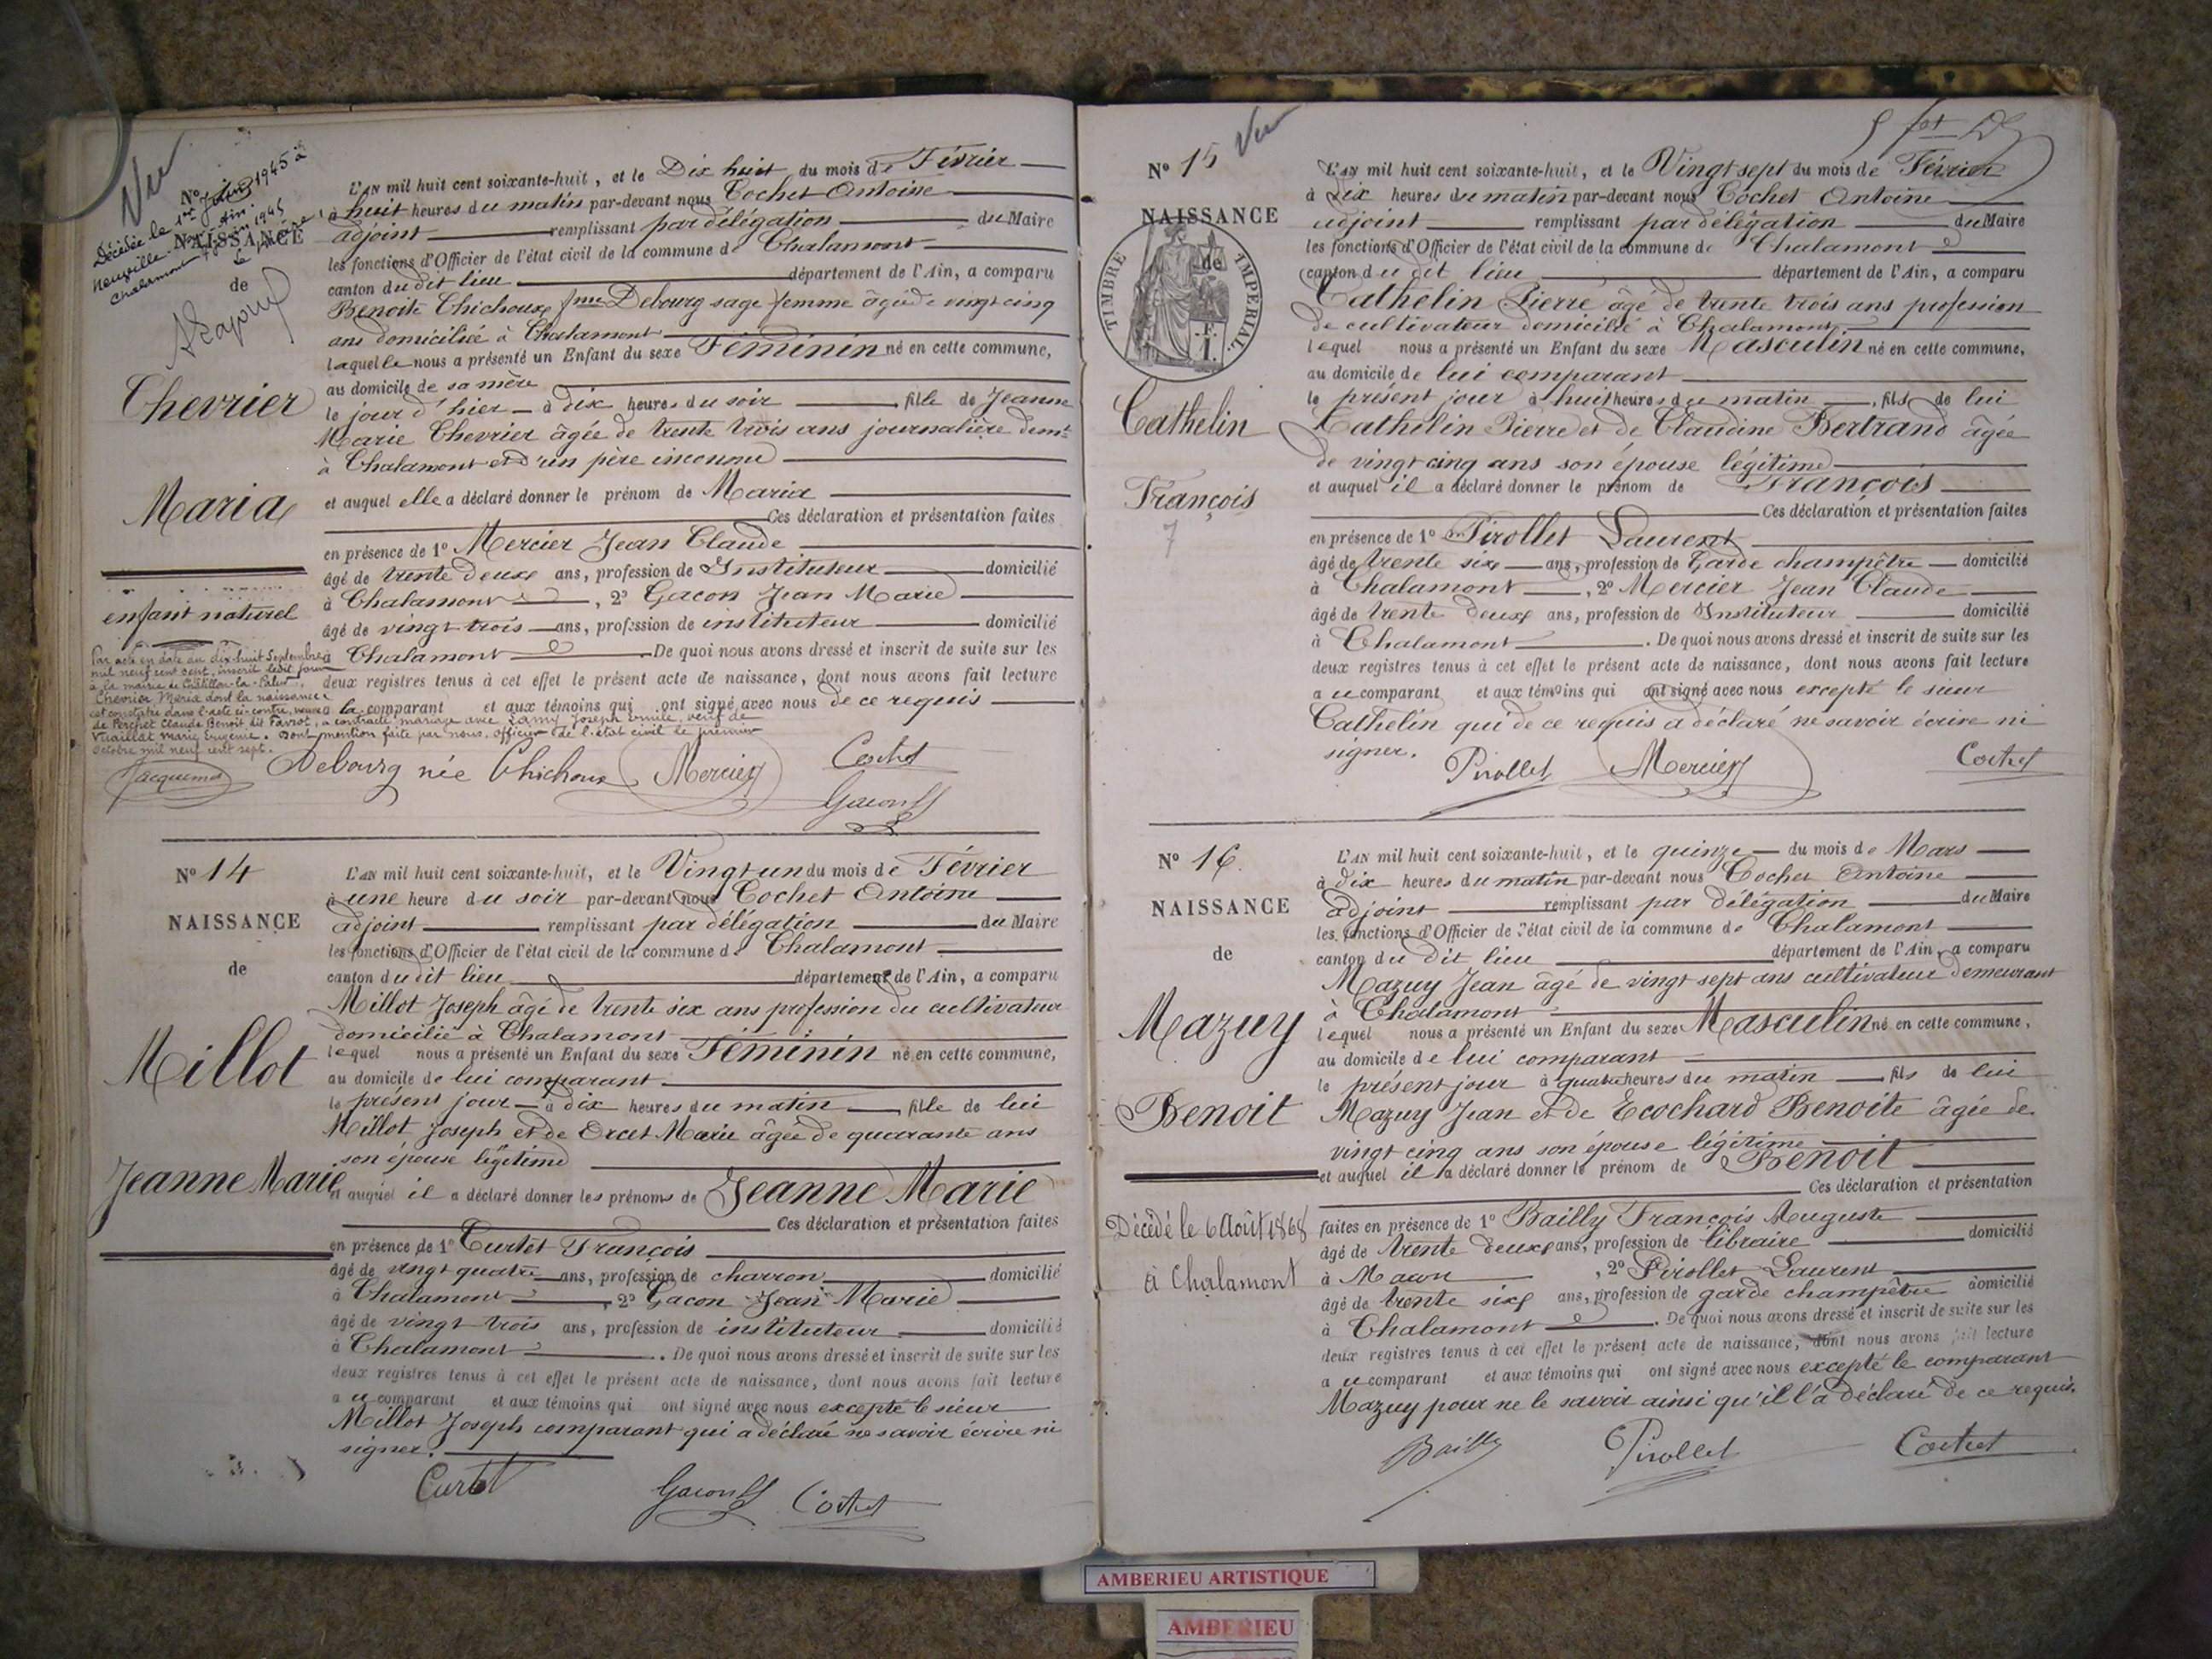 Vu
Nº
Décédée le 1er Juin 1945 à
Neuville
Chalamont 1945
le
NAISSANCE
de
Chevrier
Maria
enfant naturel
Par acte en date du dix-huit Septembre
mil neuf cent sept, inscrit ledit jour
à la mairie de Châtillon-la-Palud,
Chevrier Maria dont la naissance
est constatée dans l'acte ci-contre, veuve
de Perchet Claude Benoit dit Favrot, a contracté mariage avec Lamy Joseph Emile, veuf de
Vuaillat Marie Eugénie. Dont mention faite par nous, officier de l'état civil le premier
octobre mil neuf cent sept.
Jacquemet
L'AN mil huit cent soixante-huit, et le Dix huit du mois de Février
à huit heures du matin par-devant nous Cochet Antoine
adjoint remplissant par délégation du Maire
les fonctions d'Officier de l'état civil de la commune de Chalamont
canton du dit lieu département de l'Ain, a comparu
Benoite Chichoux fme Debourg sage femme âgée de vingt cinq
ans domiciliée à Chalamont
laquelle nous a présenté un Enfant du sexe Féminin né en cette commune,
au domicile de sa mère
le jour d'hier à dix heures du soir fille de Jeanne
Marie Chevrier âgée de trente trois ans journalière demt
à Chalamont et d'un père inconnu
et auquel elle a déclaré donner le prénom de Maria
Ces déclaration et présentation faites
en présence de 1º Mercier Jean Claude
âgé de trente deux ans, profession de Instituteur domicilié
à Chalamont, 2º Gacon Jean Marie
âgé de vingt trois ans, profession de instituteur domicilié
à Chalamont De quoi nous avons dressé et inscrit de suite sur les
deux registres tenus à cet effet le présent acte de naissance, dont nous avons fait lecture
a la comparant et aux témoins qui ont signé avec nous de ce requis
Debourg née Chichoux Mercier Cochet
Gacon
Nº 14
NAISSANCE
de
Millot
Jeanne Marie
L'AN mil huit cent soixante-huit, et le Vingt un du mois de Février
à une heure du soir par-devant nous Cochet Antoine
adjoint remplissant par délégation du Maire
les fonctions d'Officier de l'état civil de la commune de Chalamont
canton du dit lieu département de l'Ain, a comparu
Millot Joseph âgé de trente six ans profession de cultivateur
domicilié à Chalamont
lequel nous a présenté un Enfant du sexe Féminin né en cette commune,
au domicile de lui comparant
le présent jour à dix heures du matin fille de lui
Millot Joseph et de Marie âgée de quarante ans
son épouse légitime
et auquel il a déclaré donner les prénoms de Jeanne Marie
Ces déclaration et présentation faites
en présence de 1º Curtet François
âgé de vingt quatre ans, profession de charron domicilié
à Chalamont, 2º Gacon Jean Marie
âgé de vingt trois ans, profession de instituteur domicilié
à Chalamont. De quoi nous avons dressé et inscrit de suite sur les
deux registres tenus à cet effet le présent acte de naissance, dont nous avons fait lecture
a u comparant et aux témoins qui ont signé avec nous excepté le sieur
Millot Joseph comparant qui a déclaré ne savoir écrire ni
signer.
Curtet Gacon Cochet
Nº 15 Vu
NAISSANCE
de
TIMBRE IMPÉRIAL
Cathelin
François
7
L'AN mil huit cent soixante-huit, et le Vingt sept du mois de Février
à dix heures du matin par-devant nous Cochet Antoine
adjoint remplissant par délégation du Maire
les fonctions d'Officier de l'état civil de la commune de Chalamont
canton du dit lieu département de l'Ain, a comparu
Cathelin Pierre âgé de trente trois ans profession
de cultivateur domicilié à Chalamont
lequel nous a présenté un Enfant du sexe Masculin né en cette commune,
au domicile de lui comparant
le présent jour à huit heures du matin, fils de lui
Cathelin Pierre et de Claudine Bertrand âgée
de vingt cinq ans son épouse légitime
et auquel il a déclaré donner le prénom de François
Ces déclaration et présentation faites
en présence de 1º Pirollet Laurent
âgé de trente six ans, profession de Garde champêtre domicilié
à Chalamont, 2º Mercier Jean Claude
âgé de trente deux ans, profession de Instituteur domicilié
à Chalamont. De quoi nous avons dressé et inscrit de suite sur les
deux registres tenus à cet effet le présent acte de naissance, dont nous avons fait lecture
a u comparant et aux témoins qui ont signé avec nous excepté le sieur
Cathelin qui de ce requis a déclaré ne savoir écrire ni
signer.
Pirollet Mercier Cochet
Nº 16.
NAISSANCE
de
Mazuy
Benoit
Décédé le 6 Août 1868
à Chalamont
L'AN mil huit cent soixante-huit, et le quinze du mois de Mars
à dix heures du matin par-devant nous Cochet Antoine
adjoint remplissant par délégation du Maire
les fonctions d'Officier de l'état civil de la commune de Chalamont
canton du dit lieu département de l'Ain, a comparu
Mazuy Jean âgé de vingt sept ans cultivateur demeurant
à Chalamont
lequel nous a présenté un Enfant du sexe Masculin né en cette commune,
au domicile de lui comparant
le présent jour à quatre heures du matin fils de lui
Mazuy Jean et de Ecochard Benoite âgée de
vingt cinq ans son épouse légitime
et auquel il a déclaré donner le prénom de Benoit
Ces déclaration et présentation
faites en présence de 1º Bailly François Auguste
âgé de trente deux ans, profession de libraire domicilié
à Macon, 2º Pirollet Laurent
âgé de trente six ans, profession de garde champêtre domicilié
à Chalamont. De quoi nous avons dressé et inscrit de suite sur les
deux registres tenus à cet effet le présent acte de naissance, dont nous avons fait lecture
a u comparant et aux témoins qui ont signé avec nous excepté le comparant
Mazuy pour ne le savoir ainsi qu'il l'a déclaré de ce requis.
Bailly Pirollet Cochet
AMBERIEU ARTISTIQUE
AMBERIEU